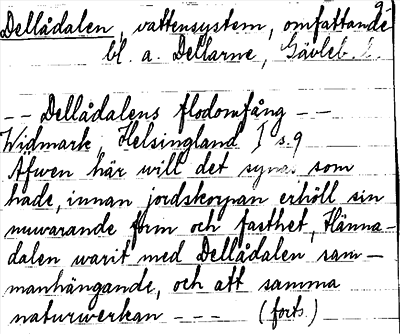 9
Dellådalen, vattensystem, omfattande
bl. a. Dellarne, Gävleb. l.
-- Dellådalens flodomfång --
Widmark, Helsingland I s. 9
Äfwen här will det synas som
hade, innan jordskorpan erhöll sin
nuwarande form och fasthet, Hänna-
dalen warit med Dellådalen sam-
manhängande, och att samma
naturwerkan --- (forts.)